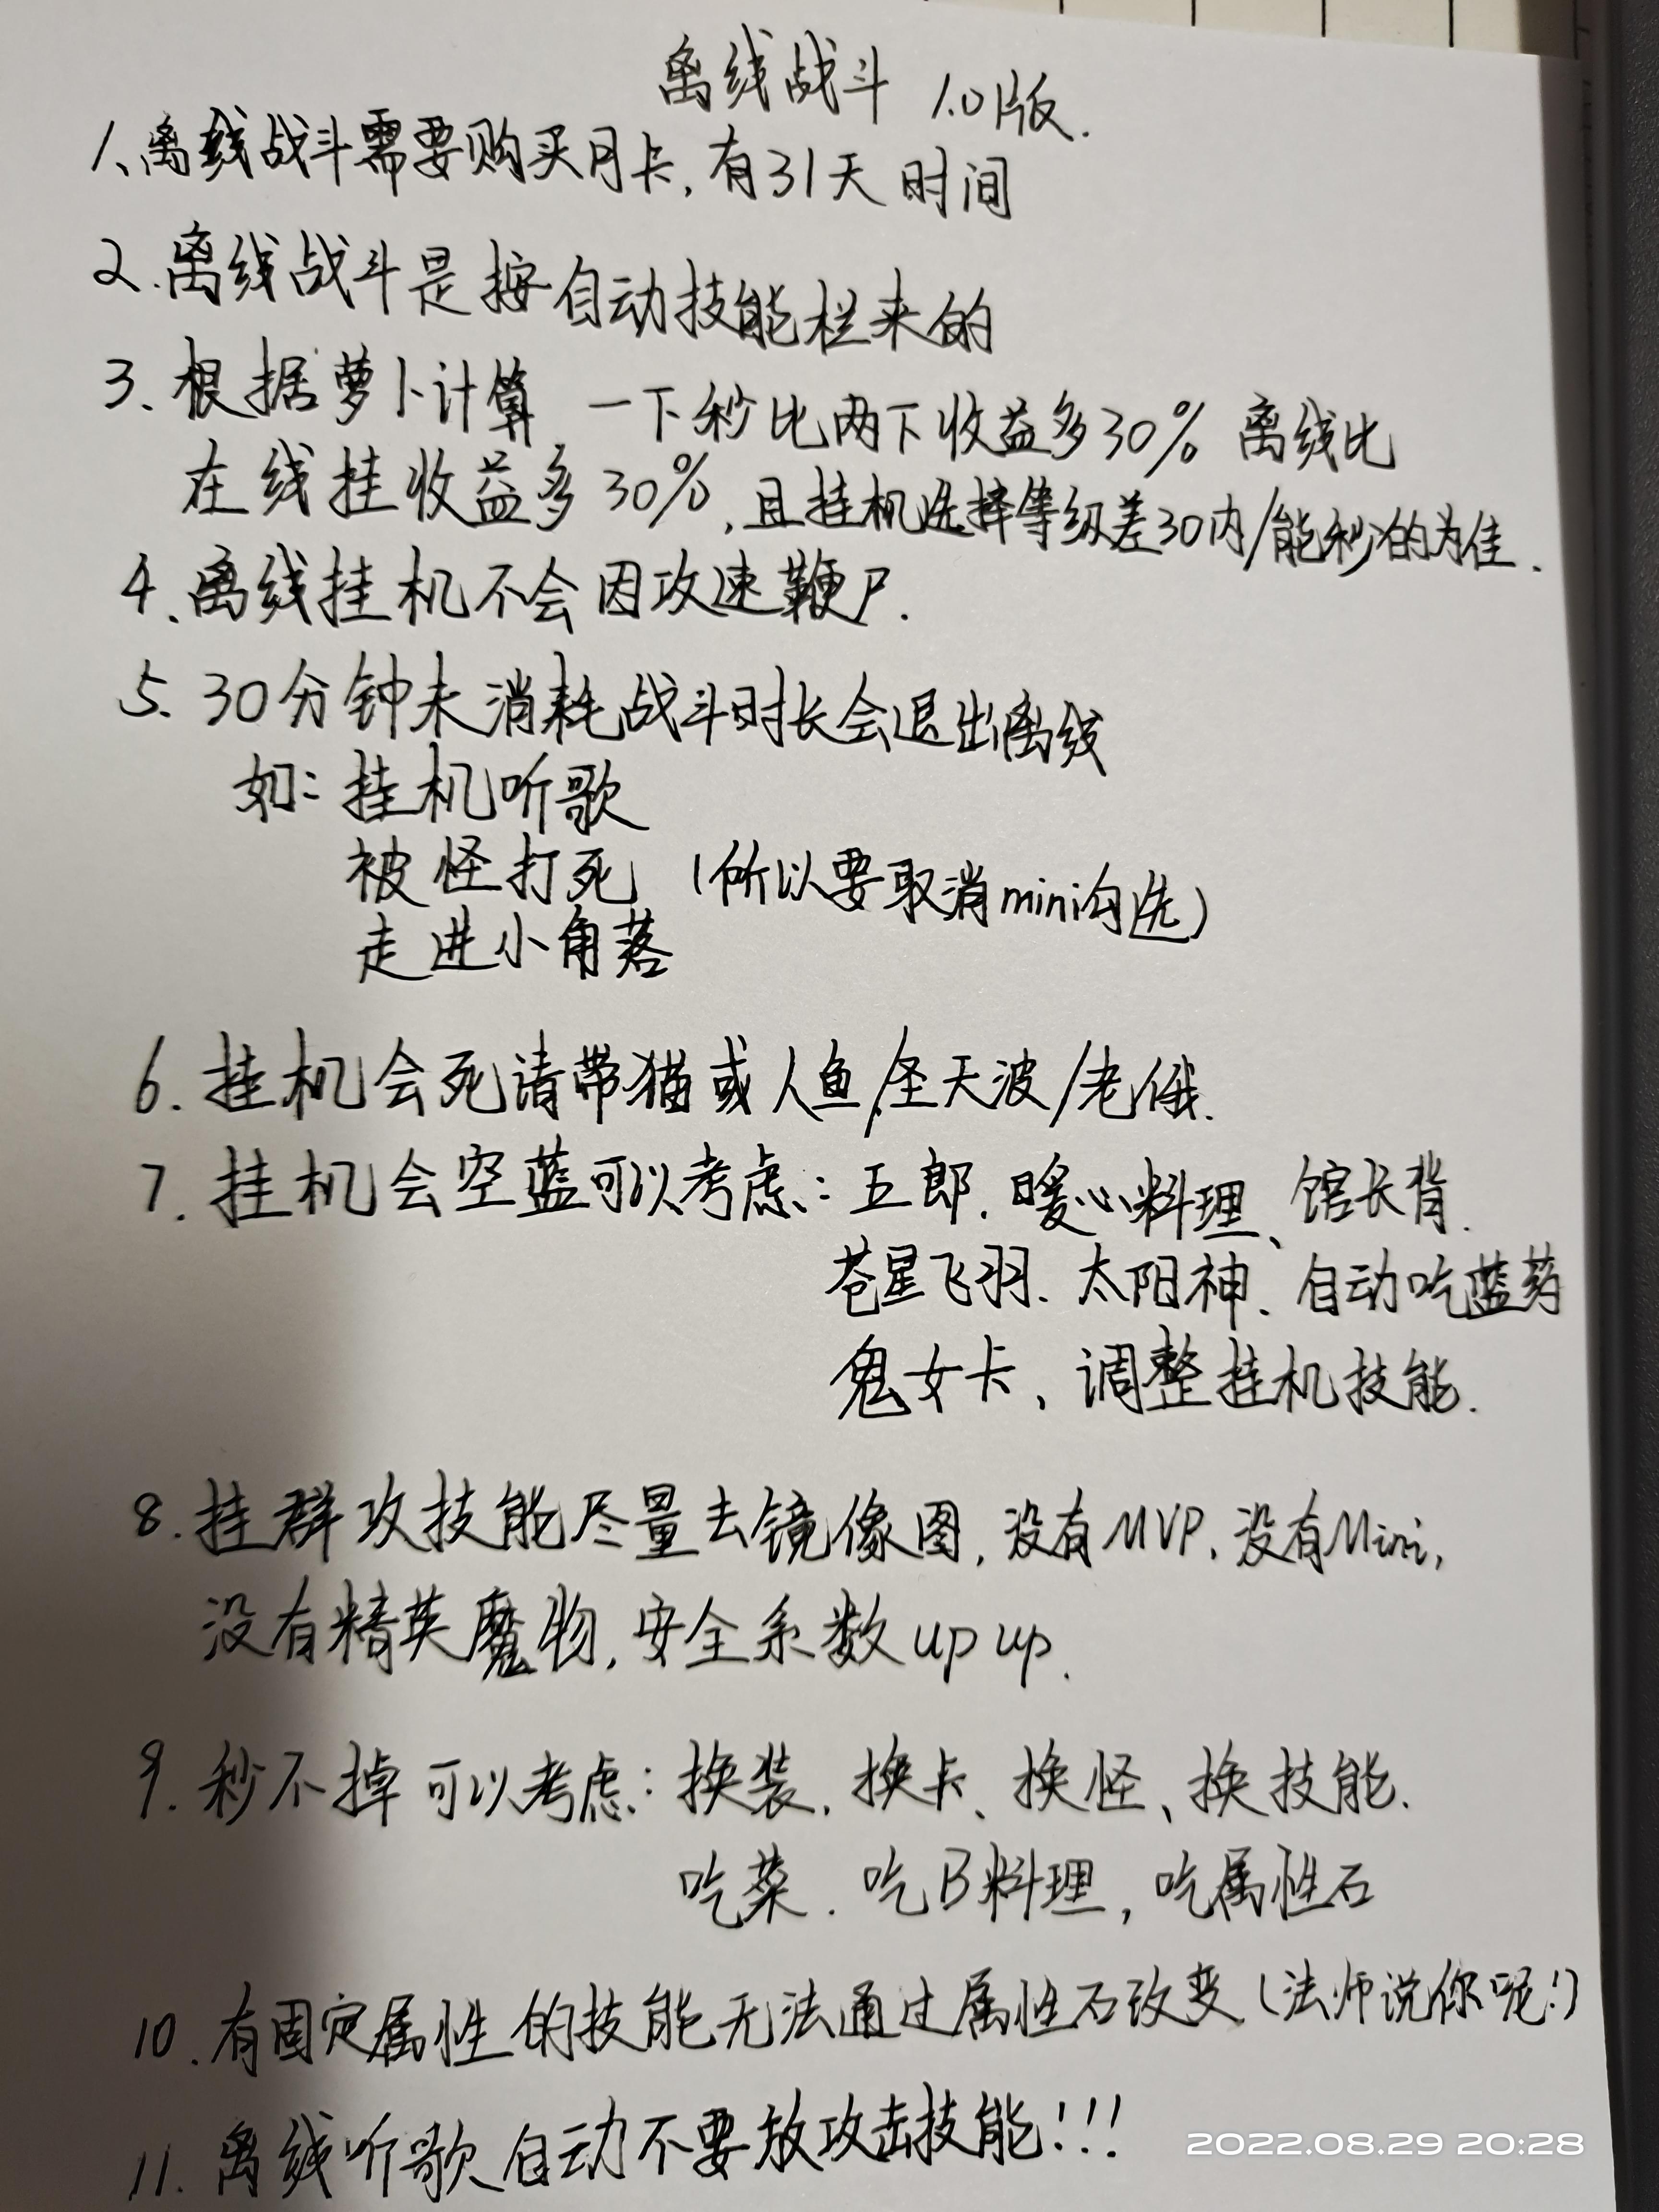 离线战斗 1.0版.
1、离线战斗需要购买月卡,有31天时间
2.离线战斗是按自动技能栏来的
3、根据萝卜计算,一下秒比两下收益多30% 离线比
在线挂收益多30%,且挂机选择等级差30内/能秒的为佳.
4、离线挂机不会因攻速鞭尸.
5、30分钟未消耗战斗时长会退出离线
如:挂机听歌
被怪打死 (所以要取消mini勾选)
走进小角落
6.挂机会死请带猫或人鱼,圣天波/老俄.
7.挂机会空蓝可以考虑:五郎.暖心料理、馆长背.
苍星飞羽.太阳神、自动吃蓝药
鬼女卡、调整挂机技能.
8.挂群攻技能尽量去镜像图,没有MVP.没有Mini,
没有精英魔物,安全系数up up.
9.秒不掉可以考虑:换装.换卡、换怪、换技能.
吃菜.吃B料理,吃属性石
10.有固定属性的技能无法通过属性石改变(法师说你呢!)
11.离线听歌自动不要放攻击技能!!!
2022.08.29 20:28